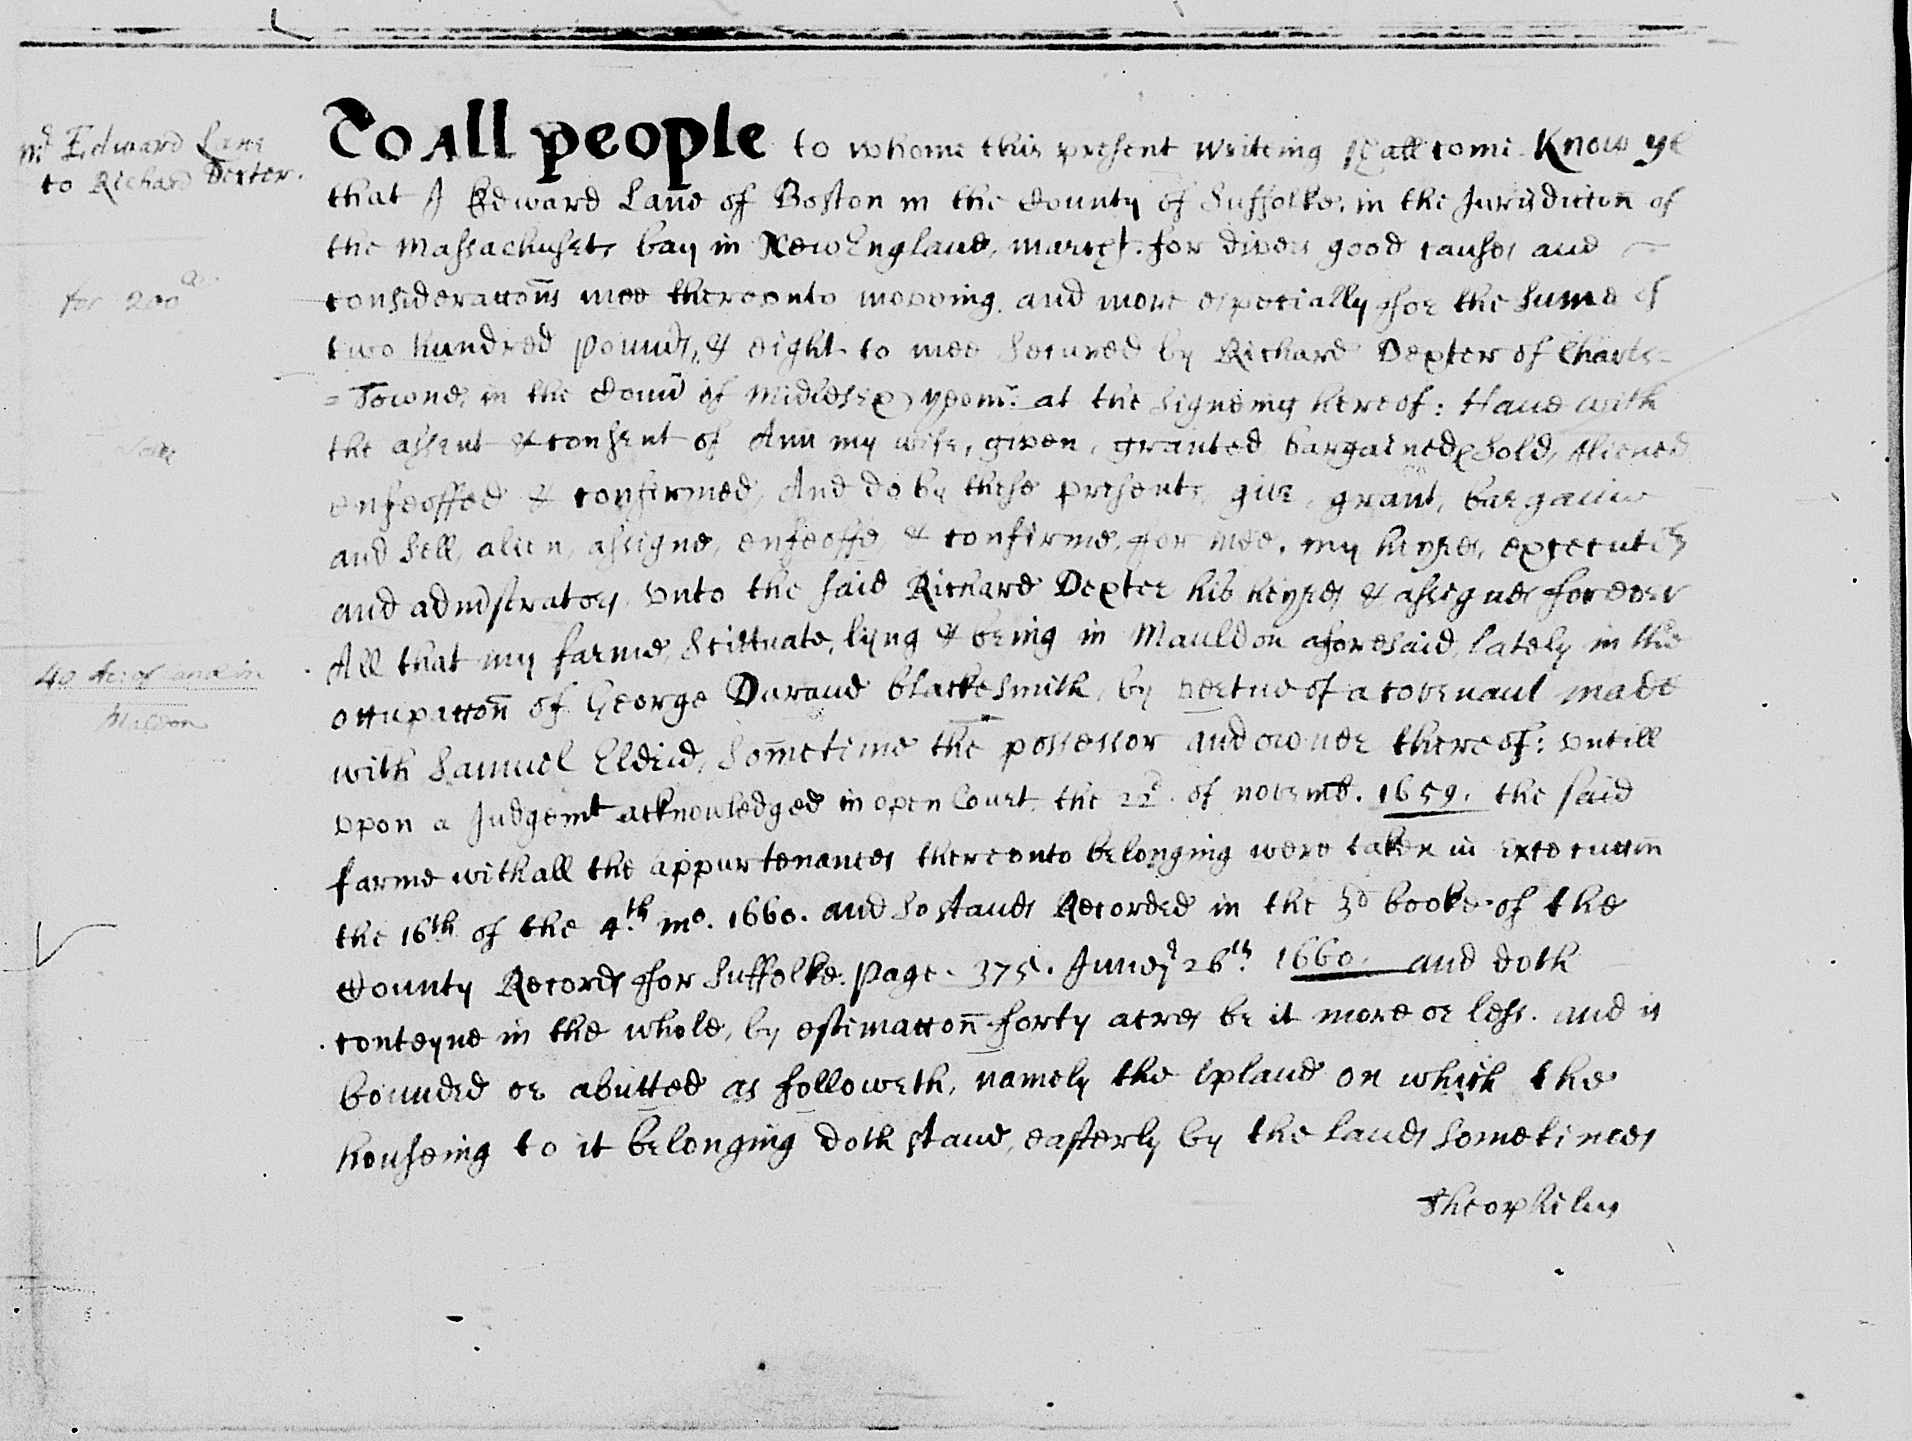 mr Edward Lane
to Richard Dexter.
for 200
40 Acr of land in
Maldon
To All people to whome this present writeing shall come Know ye
that I Edward Lane of Boston in the County of Suffolke, in the Jurisdiction of
the Massachusets bay in New England, march.t for divers good causes and
consideratons mee thereunto mooving, and more especially ffor the sume of
two hundred pounds, & eight to mee secured by Richard Dexter of Charls=
=Towne, in the Coun of Midlesex yeom. at the signeing hereof: Haue with
the assent & consent of Ann my wife, given, granted bargained, sold, Aliened
enfeoffed & confirmed, And do by these presents, giue, grant, bargaine
and sell, alien, assigne, enfeoffe & confirme, ffor mee, my heyres, executrs
and admstrators unto the said Richard Dexter his heyres & assignes forever
All that my farme, Scittuate, lijng & being in Mauldon aforesaid, lately in the
occupacon of George Durand blackesmith, by vertue of a covenant made
with Samuel Eldrid, sometime the possessor and owner thereof: untill
upon a Judgemt acknowledged in open Court, the 22d. of novemb. 1659. the said
farme with all the appurtenances thereunto belonging were taken in executon
the 16th of the 4th. mo. 1660. and so stands Recorded in the 3d booke of the
County Records ffor Suffolke. page. 375. June 26th. 1660. and doth
conteyne in the whole, by estimaton forty acres be it more or less. and is
bounded or abutted as followeth, namely the upland on which the
houseing to it belonging doth stand, easterly by the lands sometimes
Theophilus